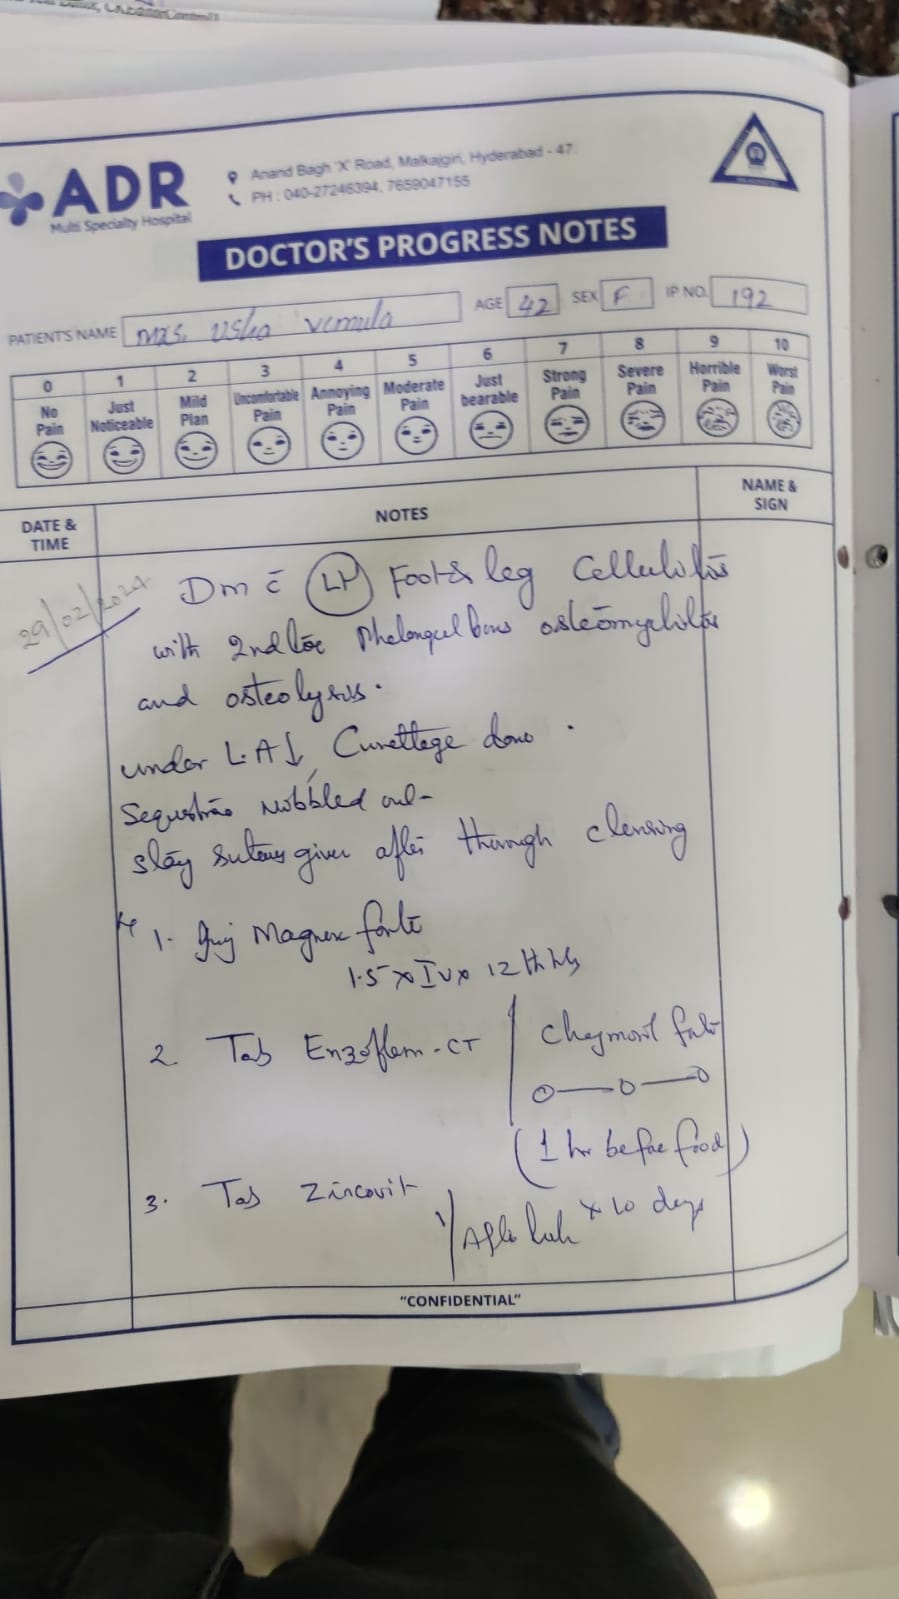 ADR
Multi Specialty Hospital
Anand Bagh 'X' Road, Malkajgiri, Hyderabad - 47.
PH : 040-27246394, 7659047155
DOCTOR'S PROGRESS NOTES
PATIENT'S NAME Mrs. Usha Vemula AGE 42 SEX F IP NO. 192
0 1 2 3 4 5 6 7 8 9 10
No Pain Just Noticeable Mild Plan Uncomfortable Pain Annoying Pain Moderate Pain Just bearable Strong Pain Severe Pain Horrible Pain Worst Pain
DATE & TIME NOTES NAME & SIGN
29/02/2024
Dm c̄ Foot & leg Cellulitis
with 2nd toe Phalangeal bone osteomyelitis
and osteolysis.
under L.A↓, Curettege done.
Nibbled out
stay sutures given after thorough cleansing
1. Inj Magnex forte
1.5 x IV x 12th hly
2. Tab Enzoflam-CT
Chymoral forte
0—0—0
(1 hr before food)
3. Tab Zincovit
After lunch x 10 days
"CONFIDENTIAL"